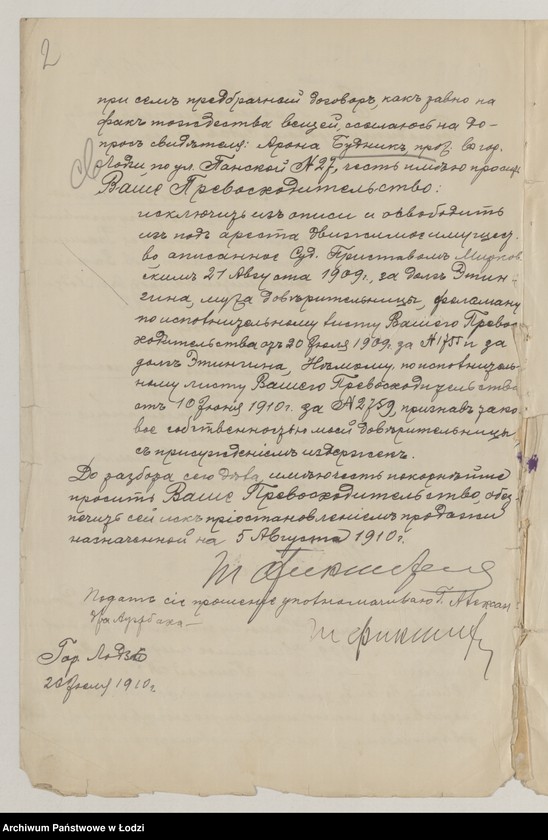 2
при семъ предбрачный договоръ, какъ равно на
фактъ тождества вещей, ссылаюсь на до-
просъ свидѣтеля: Арона Будникъ, прож. въ гор.
Лодзи по ул. Панской № 27, честь имѣю просить
Ваше Превосходительство:
исключить изъ описи и освободить
изъ подъ ареста движимое имущест-
во описанное Суд. Приставомъ
скимъ 21 Августа 1909 г., за долгъ Этин-
гина, мужа довѣрительницы,
по исполнительному листу Вашего Прево-
сходительства отъ 20 Іюля 1909 г. за № 1755 и за
долгъ Этингина, по исполнитель-
ному листу Вашего Превосходительства
отъ 10 Іюня 1910 г. за № 2759, признавъ тако-
вое собственностью моей довѣрительницы
съ присужденіемъ издержекъ.
До разбора сего дѣла, имѣю честь покорнѣйше
просить Ваше Превосходительство, обез-
печить сей искъ пріостановленіемъ продажи
назначенной на 5 Августа 1910 г.
Подать сіе прошеніе уполномачиваю Г. Алексан-
дра Ауэрбаха —
Гор. Лодзь
Іюля 1910 г.
Archiwum Państwowe w Łodzi